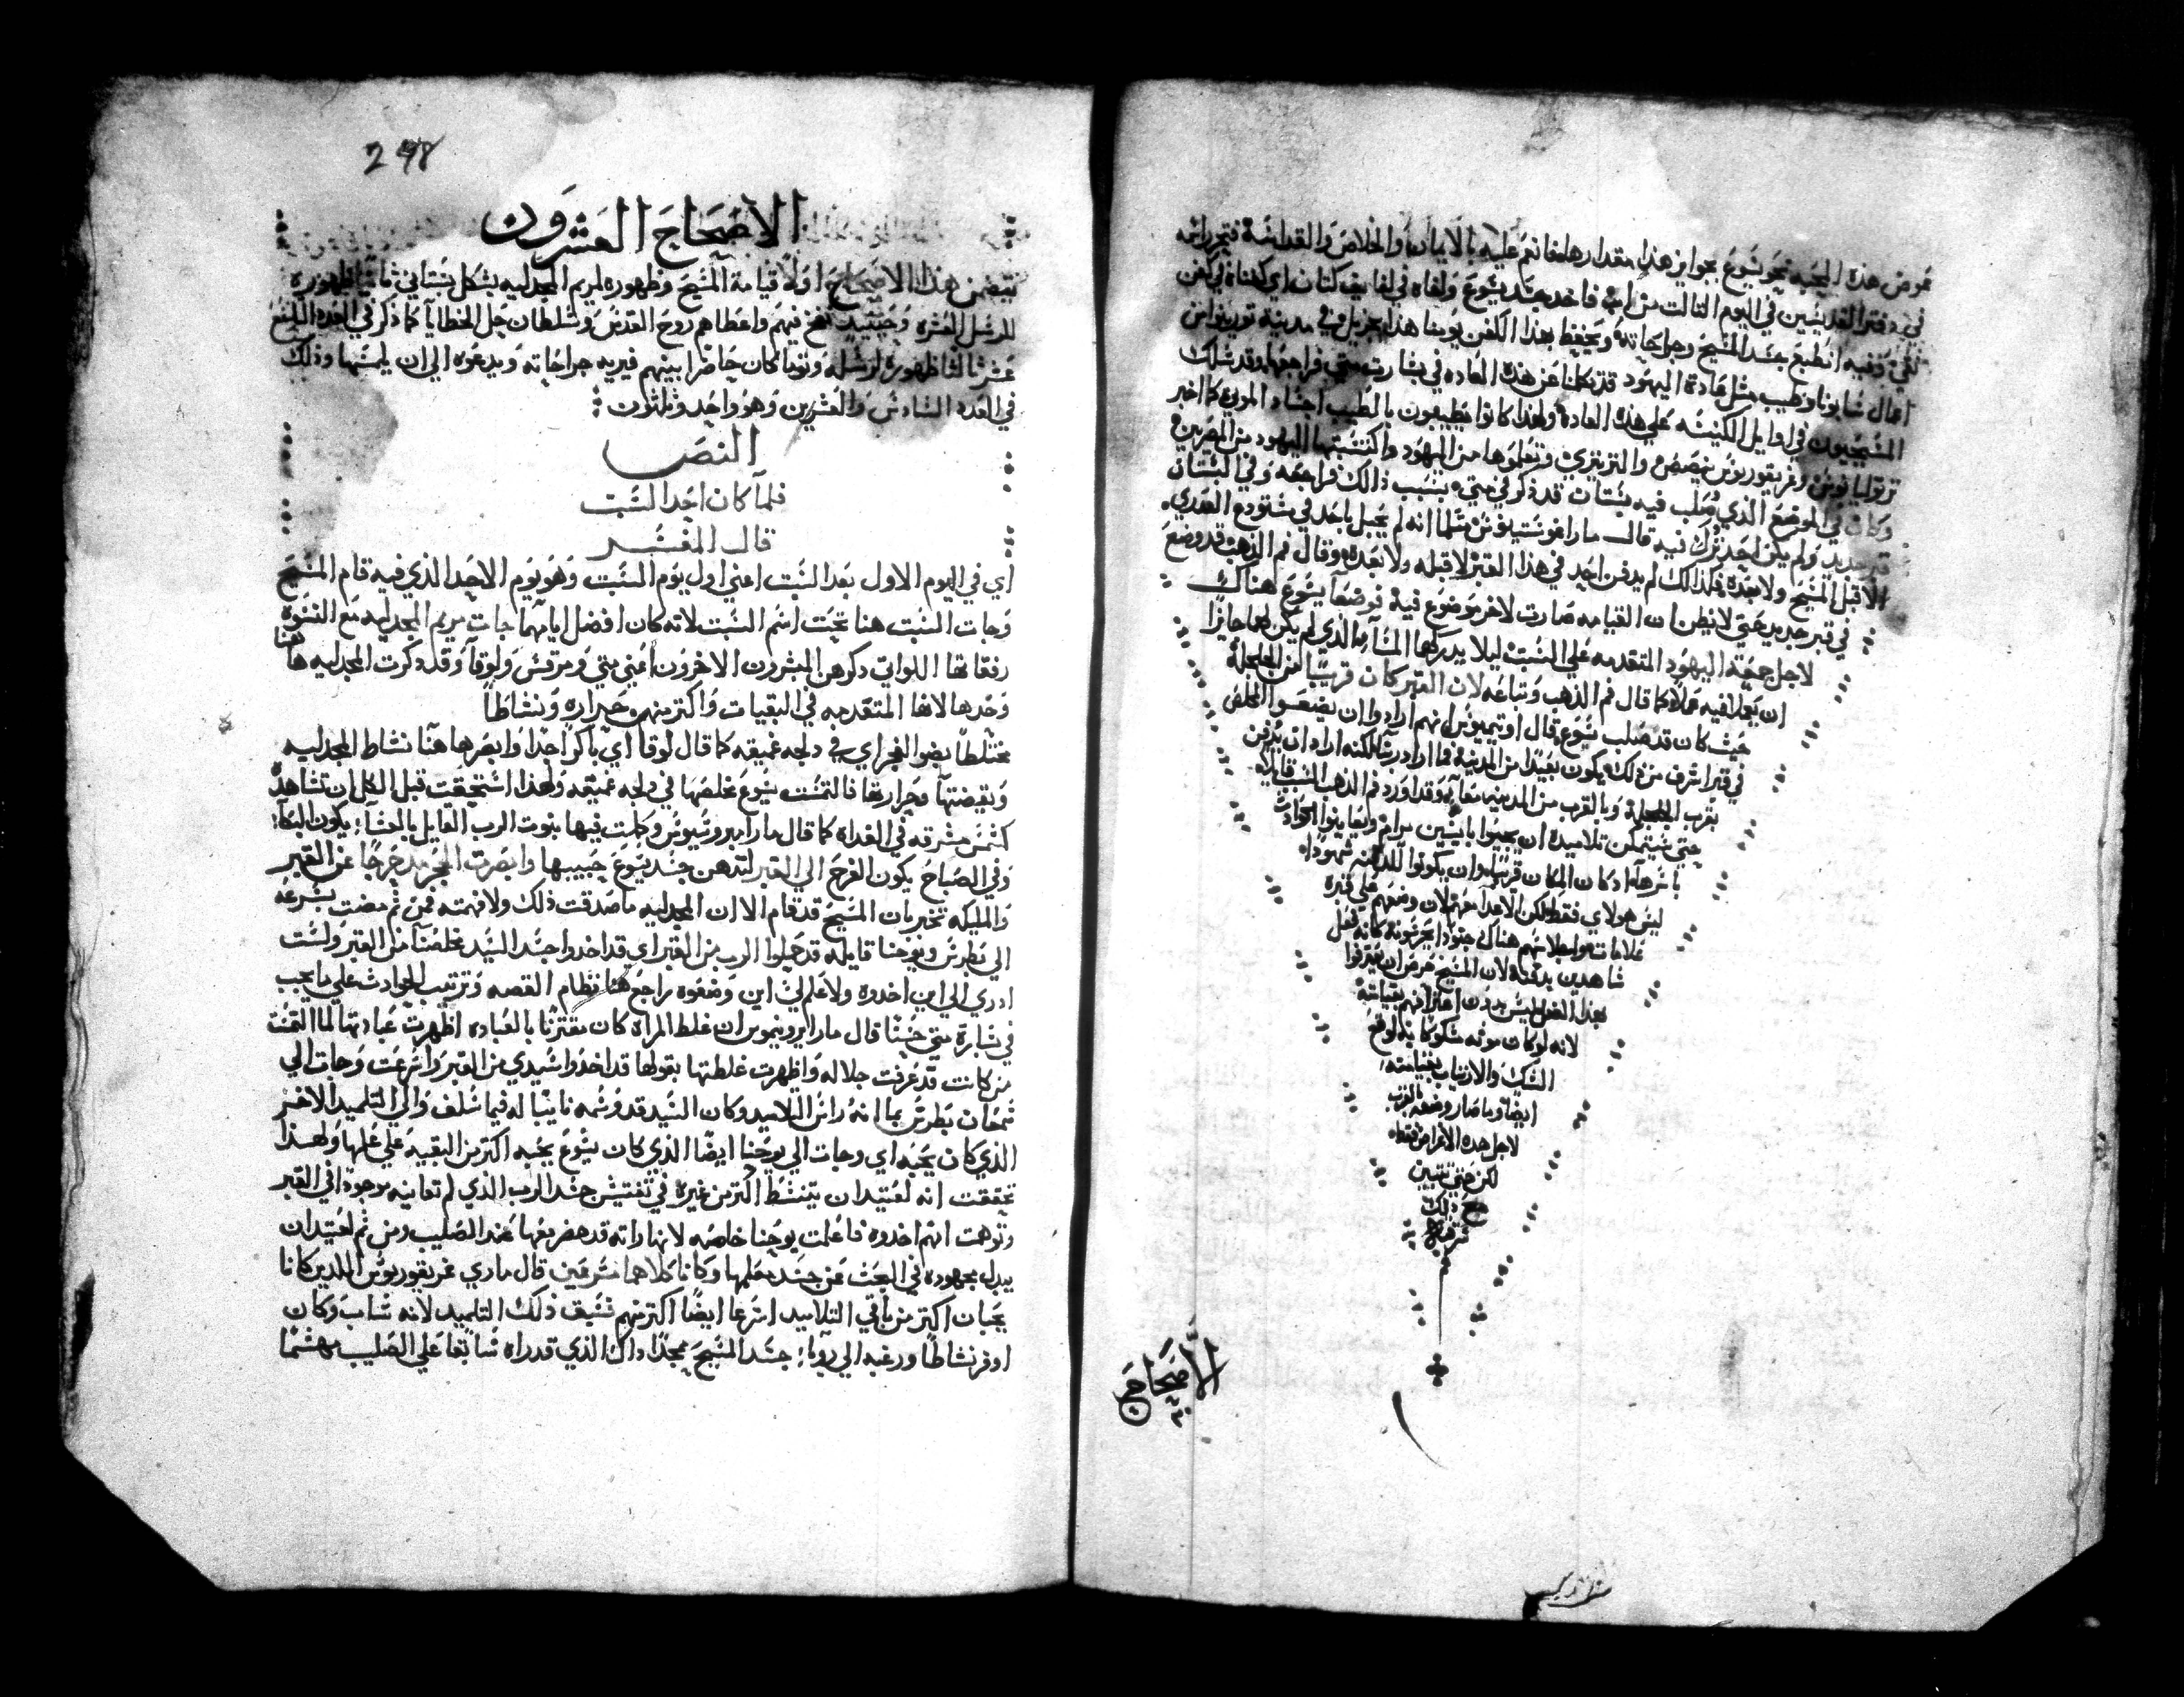 عوض هذه المحبه نحو يشوع بجوايز هذا مقدارها فانعم عليه بالايمان والخلاص والقداسة فتحرر اسمه
في دفتر القديسين في اليوم الثالت من اب فاخد جسد يشوع ولفاه في لفايف كتان اي كفناه في كفن
نقي وفيه انطبع جسد المسيح وجراحاته ويحفظ بهذا الكفن يومنا هذا بجزيل في مدينة تورينو من
اعمال سابويا وطيب مثل عادة اليهود قد تكلمنا عن هذه العاده في بشارت متي فراجعها وقد سلك
المسيحيون في اوايل الكنيسه علي هذه العاده ولهذا كانوا يطيبون بالطيب اجساد الموتي كما اخبر
ترتوليانوس وغريغوريوس نيصص والنزينزي وتعلموها من اليهود واكتسبتها اليهود من المصريين
وكان في الموضع الذي صلب فيه بستان قد ذكر في متي بسبب ذالك فراجعه وفي البستان
قبر جديد ولم يكن احد ترك فيه قال مار اغوستينوس كما انه لم يحبل باحد في مستودع العدري
لا قبل المسيح ولا بعده فكذالك لم يدفن احد في هذا القبر لا قبله ولا بعده وقال فم الذهب قد وضع
في قبر جديد حتي لا يظن ان القيامه صارت لاخر موضوع فيه فوضعا يشوع هناك
لاجل جمعة اليهود المتقدمه علي السبت ليلا يدركهما المسا الذي لم يكن لهما جايزا
ان يعملا فيه عملا كما قال فم الذهب وتباعه لان القبر كان قريبا من الجلجلة
حيث كان قد صلب يشوع قال اوتيميوس انهم ارادوا ان يضعوا المخلص
في قبر اشرف من ذلك ويكون بعيدا من المدينة فما اراد ربنا لكنه اراد ان يدفن
بقرب الجلجلة وبالقرب من المدينه معا وقد اورد فم الذهب السبب قايلا
حتي يستمكن تلاميده ان يجيوا بايسين مرام ويعاينوا الحوادث
باسرها اد كان المكان قريبا وان يكونوا للدفنه شهودا
ليس هولاي فقط لكن الاعدا معهم لان وضعهم علي قبره
علامات واجلاسهم هناك جنودا يحرسونه كانه فعل
شاهدين بدفنه لان المسيح حرص ان يعترفوا
بهذا الفعل ليس بدون اعترافهم بقيامته
لانه لو كان موته مشكوكا به لوقع
الشك والارتياب بقيامته
ايضا وما صار وضعه بالقرب
لاجل هده الاغراض فقط
لكن حتي تتبين
مع ذالك
سرقه
الاصحاح
٢٠
298
الاصحاح العشرون
تتضمن هذا الاصحاح اولا قيامة المسيح وظهوره لمريم المجدليه بشكل بستاني ثانيا ظهوره
للرسل العشره وحينيد نفخ فيهم واعطاهم روح القدس وسلطان حل الخطايا كما ذكر في العدد التاسع
عشر ثالثا ظهوره لرسله وتوما كان حاضرا بينهم فيريه جراحاته ويدعوه الي ان يلمسها وذلك
في العدد السادس والعشرين وهو واحد وثلثون
النص
فلما كان احد السبت
قال المفسر
اي في اليوم الاول بعد السبت اعني اول يوم السبت وهو يوم الاحد الذي فيه قام المسيح
وجات السبت هنا تحت اسم السبت لانه كان افضل ايامها جات مريم المجدليه مع النسوه
رفقاتها اللواتي دكرهن المبشرون الاخرون اعني متي ومرقس ولوقا وقد دكرت المجدليه هاهنا
وحدها لانها المتقدمه في البقيات واكتر منهم حراره ونشاطا
مختلطا بضو الفجر اي في دلجه عميقه كما قال لوقا اي باكرا جدا وابصرها هنا نشاط المجدليه
ويقضتها وحرارتها فالتمست يشوع مخلصها في دلجه عميقه ولهذا استحقت قبل الكل ان تشاهد
كشمس مشرقه في الغداه كما قال مار امبروسيوس وكملت فيها نبوت الرب القايل بالعشا يكون البكا
وفي الصباح يكون الفرح الي القبر لتدهن جسد يشوع حبيبها وابصرت الحجر مدحرجا عن القبر
والمليكه تخبر بان المسيح قد قام الا ان المجدليه ما صدقت ذلك ولا فهمته فمن ثم مضت بسرعه
الي بطرس ويوحنا قايله قد حملوا الرب من القبر اي قد اخدوا جسد السيد مخلصنا من القبر ولست
ادري الي اين اخدوه ولا علم لي اين وضعوه راجع هنا نظام القصه وترتيب الحوادث علي ما يجب
في بشارة متي حسنا قال مار ايرونيموس ان غلط المراه كان مقترنا بالعباده اظهرت عبادتها لما التمست
من كانت قد عرفت جلاله واظهرت غلطتها بقولها قد اخدوا سيدي من القبر واسرعت وجات الي
سمعان بطرس بما انه راس التلاميد وكان السيد قد وسمه نايبا له فيما سلف والي التلميد الاخر
الذي كان يحبه اي وجات الي يوحنا ايضا الذي كان يشوع يحبه اكتر من البقيه علي علمها ولهذا
تحققت انه لعتيد ان يتنشط اكتر من غيره في تفتيش جسد الرب الذي لم تعاينه موجودا في القبر
وتوهمت انهم اخدوه فاعلمت يوحنا خاصه لانها راته قد حضر معها عند الصليب ومن ثم لعتيد ان
يبدل مجهوده في البحث عن جسد معلمها وكانا كلاهما مسرعين قال ماري غريغوريوس اللدين كانا
يحبان اكتر من باقي التلاميد اسرعا ايضا اكتر منهم فسبق ذلك التلميد لانه شاب وكان
اوفر نشاطا ورغبه الي رويا جسد المسيح ممجدا داك الذي قد راه سابقا علي الصليب مهشما